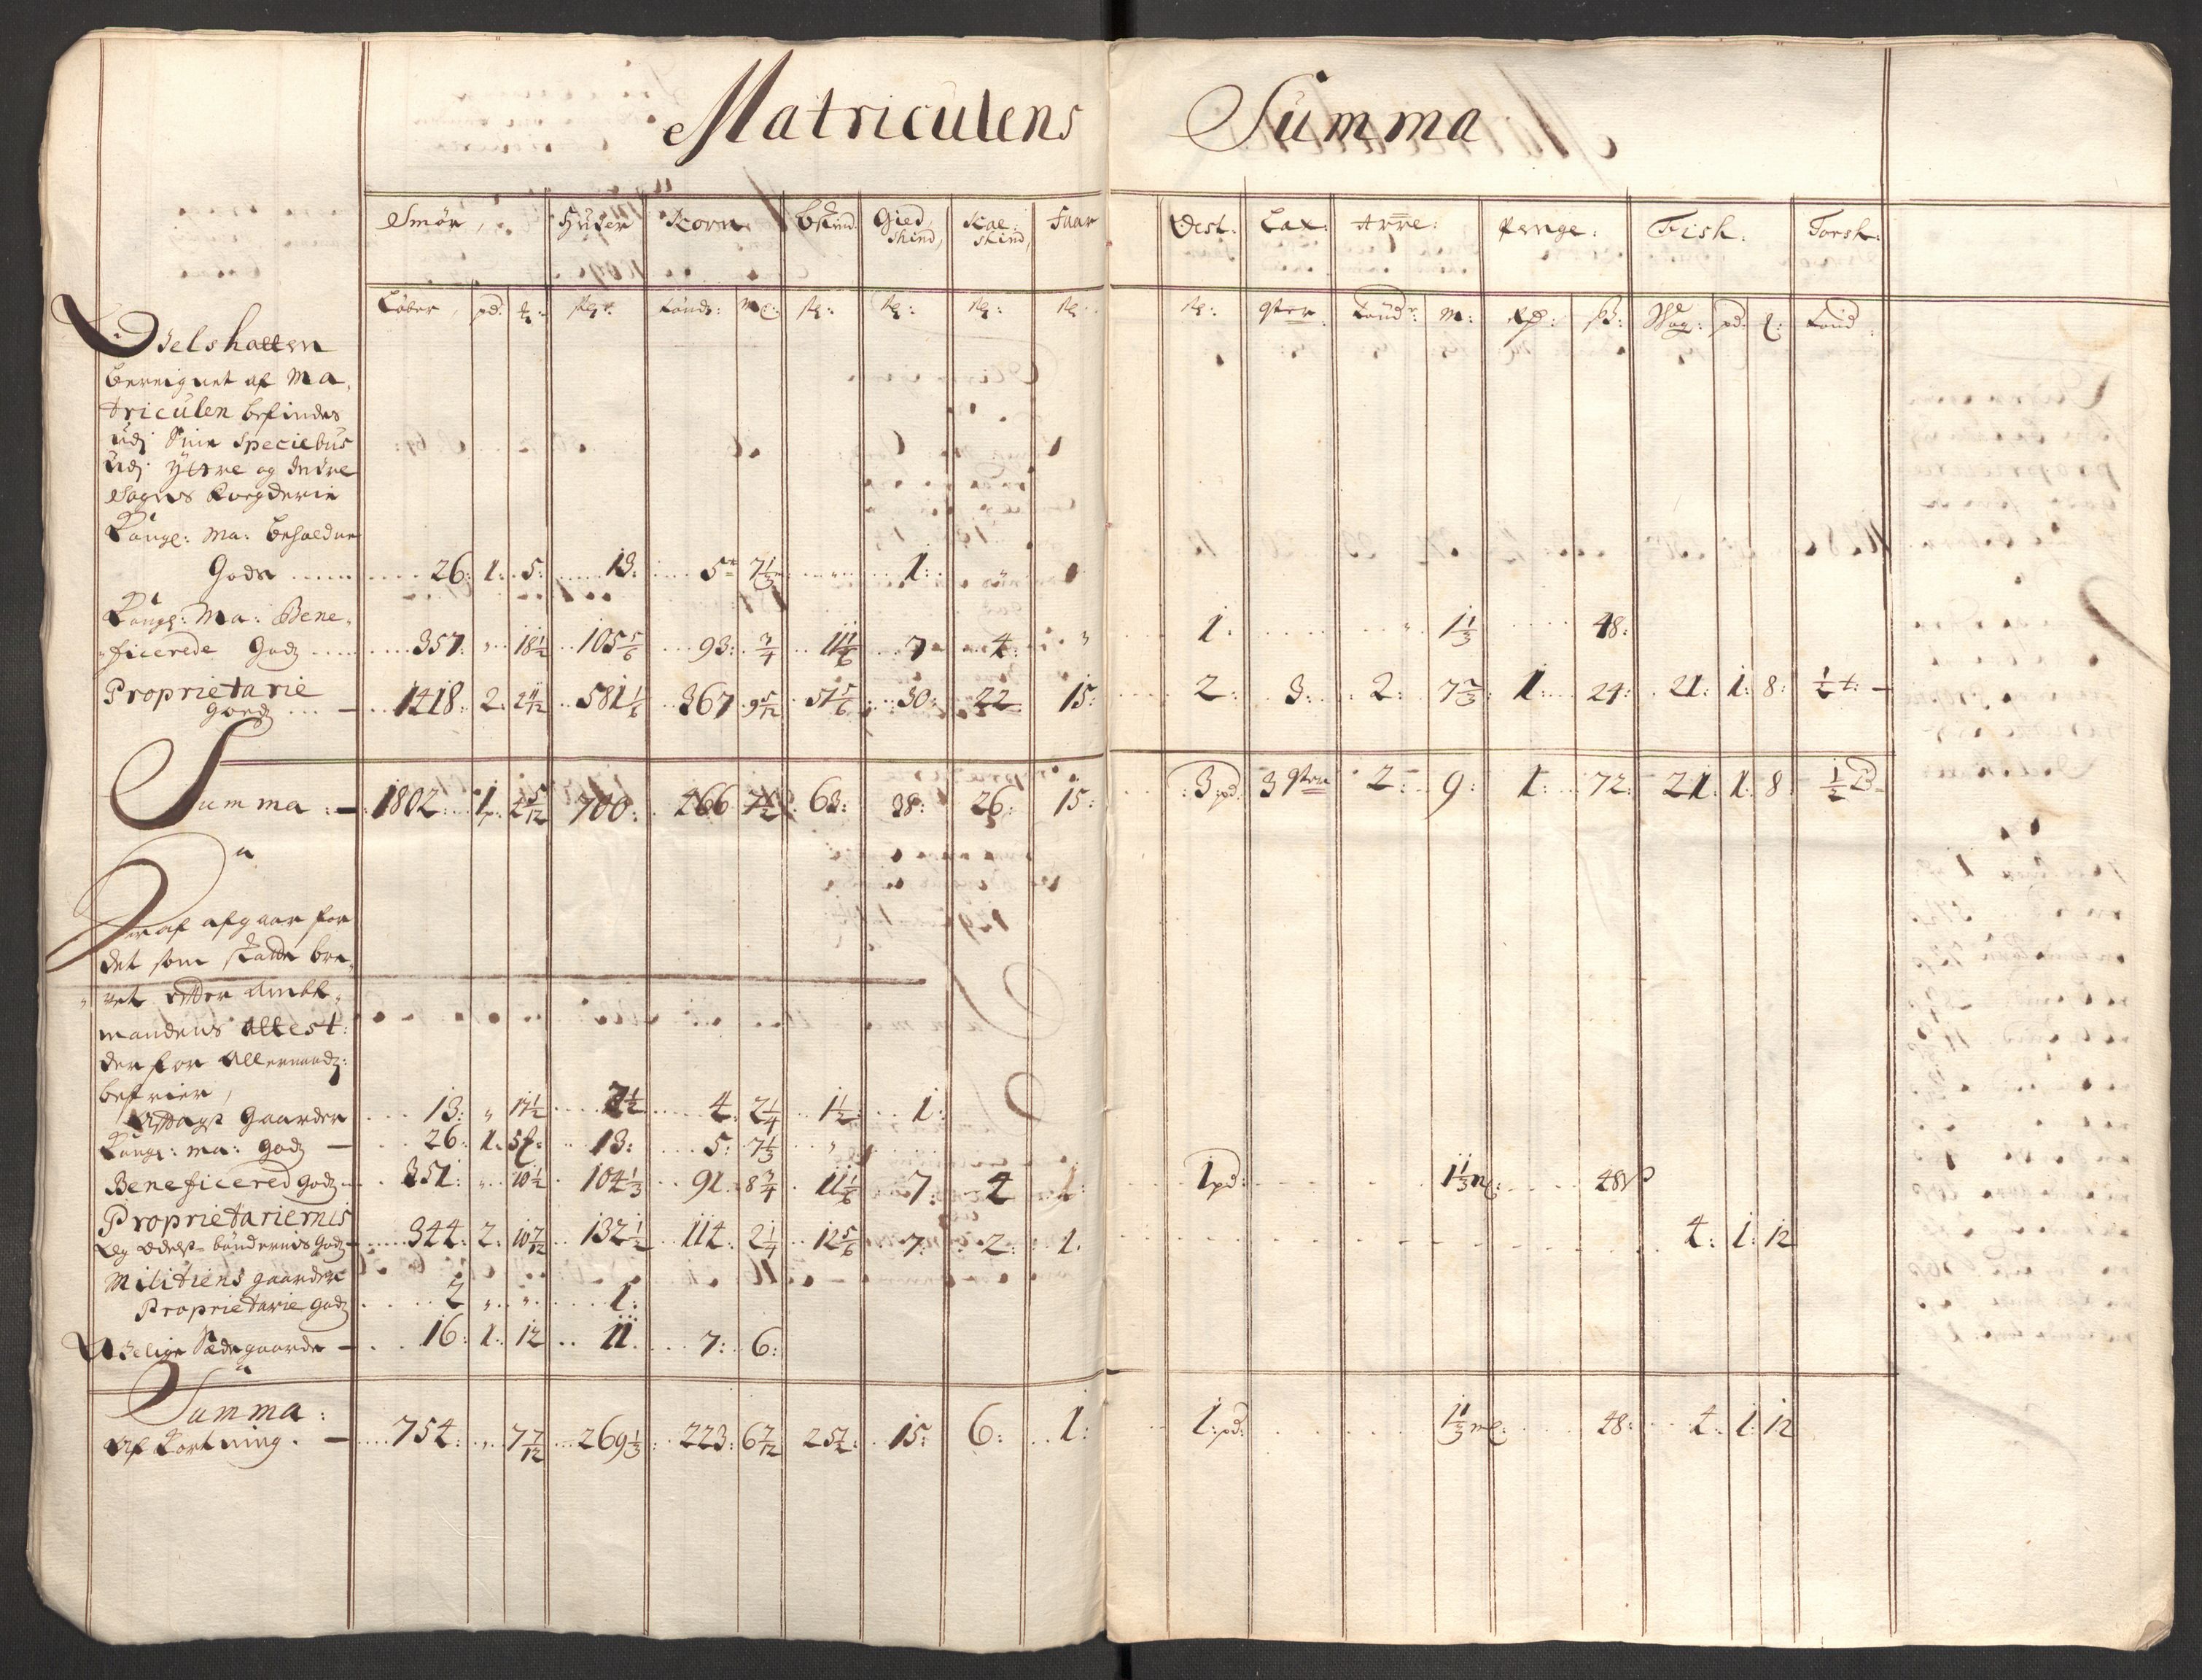 Matriculens Summa
Smør, Huder Korn B:skind Gied skind, Kal: skind, Faar Vest: Lax: Arre: Penge: Fisk: Torsk:
Løber, pd. ℔: stk. tønd: mℓ: stk: stk: stk: stk: stk: qter tønd: m: Rd: ß: Wog: pd: ℔: tønd:
Odelshatten
bereignet af Ma,
triculen befindes
udj Sine Speciebus
udj yttre og Indre
Sogns Foegderie
Kongl: Ma: beholdne
Gods ...... 26: 1: 5: 13: 5 7 1/3 " 1: "
Kongl: Ma: Bene,
ficerede Godz ..... 357: " 18 1/2 105 5/6 93: 3/4 11 1/6 7 4: " 1: " 1 1/3 48:
Proprietarie
Goedz ... 1418: 2: 2 11/12 581 1/6 367 9 5/12 51 5/6 30: 22 15: 2: 3: 2: 7 2/3 1: 24: 21: 1: 8: 1/2 t:
Summa: 1802: 1p: 4 5/12 700: 466 7 1/2 63: 38: 26: 15: 3:pd: 3 qter 2: 9: 1: 72: 21: 1: 8: 1/2
Der af afgaar for
det som
efter Ambt,
mandens Attest:
der for Allernaadz:
befrier,
Gaarder 13: " 17 1/2 7 1/2 4: 2 1/4 1 1/2 1:
Kongl: Ma: Godz 26: 1: 5 ℔: 13: 5: 7 1/3 "
Beneficered Godz 351: " 10 1/2 104 1/3 91: 8 3/4 11 1/6 7: 4 1pd: 1 1/3 mℓ: 48 ß
Proprietariernis
bøndernis Godz 344: 2: 10 7/12 132 1/2 114: 2 1/4 12 5/6 7: 2: 1: 4: 1: 12
Militiens gaarder
Proprietarie Godz 2 " " 1:
Adelige Sædegaarde 16: 1: 12 11 7: 6:
Summa:
Af Kortning. 754: " 7 7/12 269 1/3 223: 6 7/12 25 1/2 15: 6: 1: 1:pd: 1 1/3 mℓ: 48: 4: 1: 12